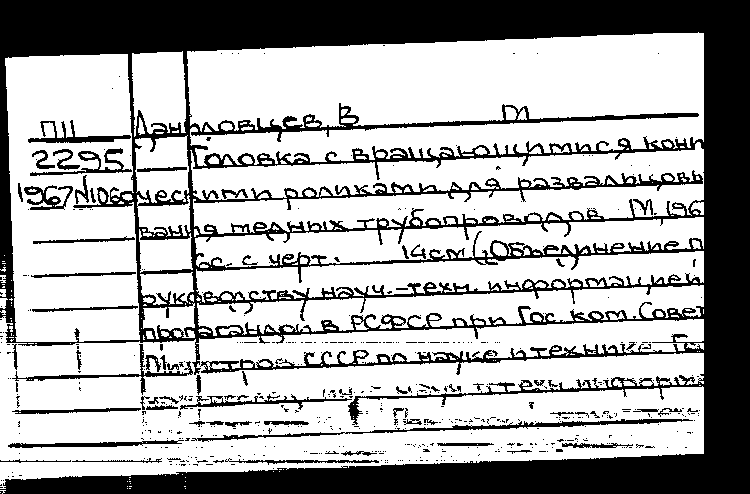 П11 Даниловцев, В. Т
2295 Головка с вращающимися кони
1967 N1060 ческими роликами для развальцовы
вания медных трубопроводов М, 196
6с. с черт. 14см (Объединение п
руководству науч.-техн. информацией
пропагандой в РСФСР при Гос. ком. Совет
Министров СССР по науке и технике. Го
науч. и техн. информа